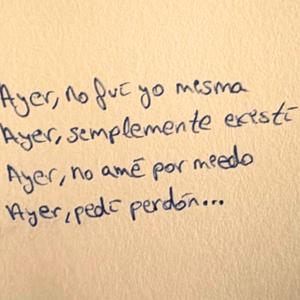 Ayer, no fuí yo mesma
Ayer, semplemente existí
Ayer, no amé por meedo
Ayer, pedí perdón...